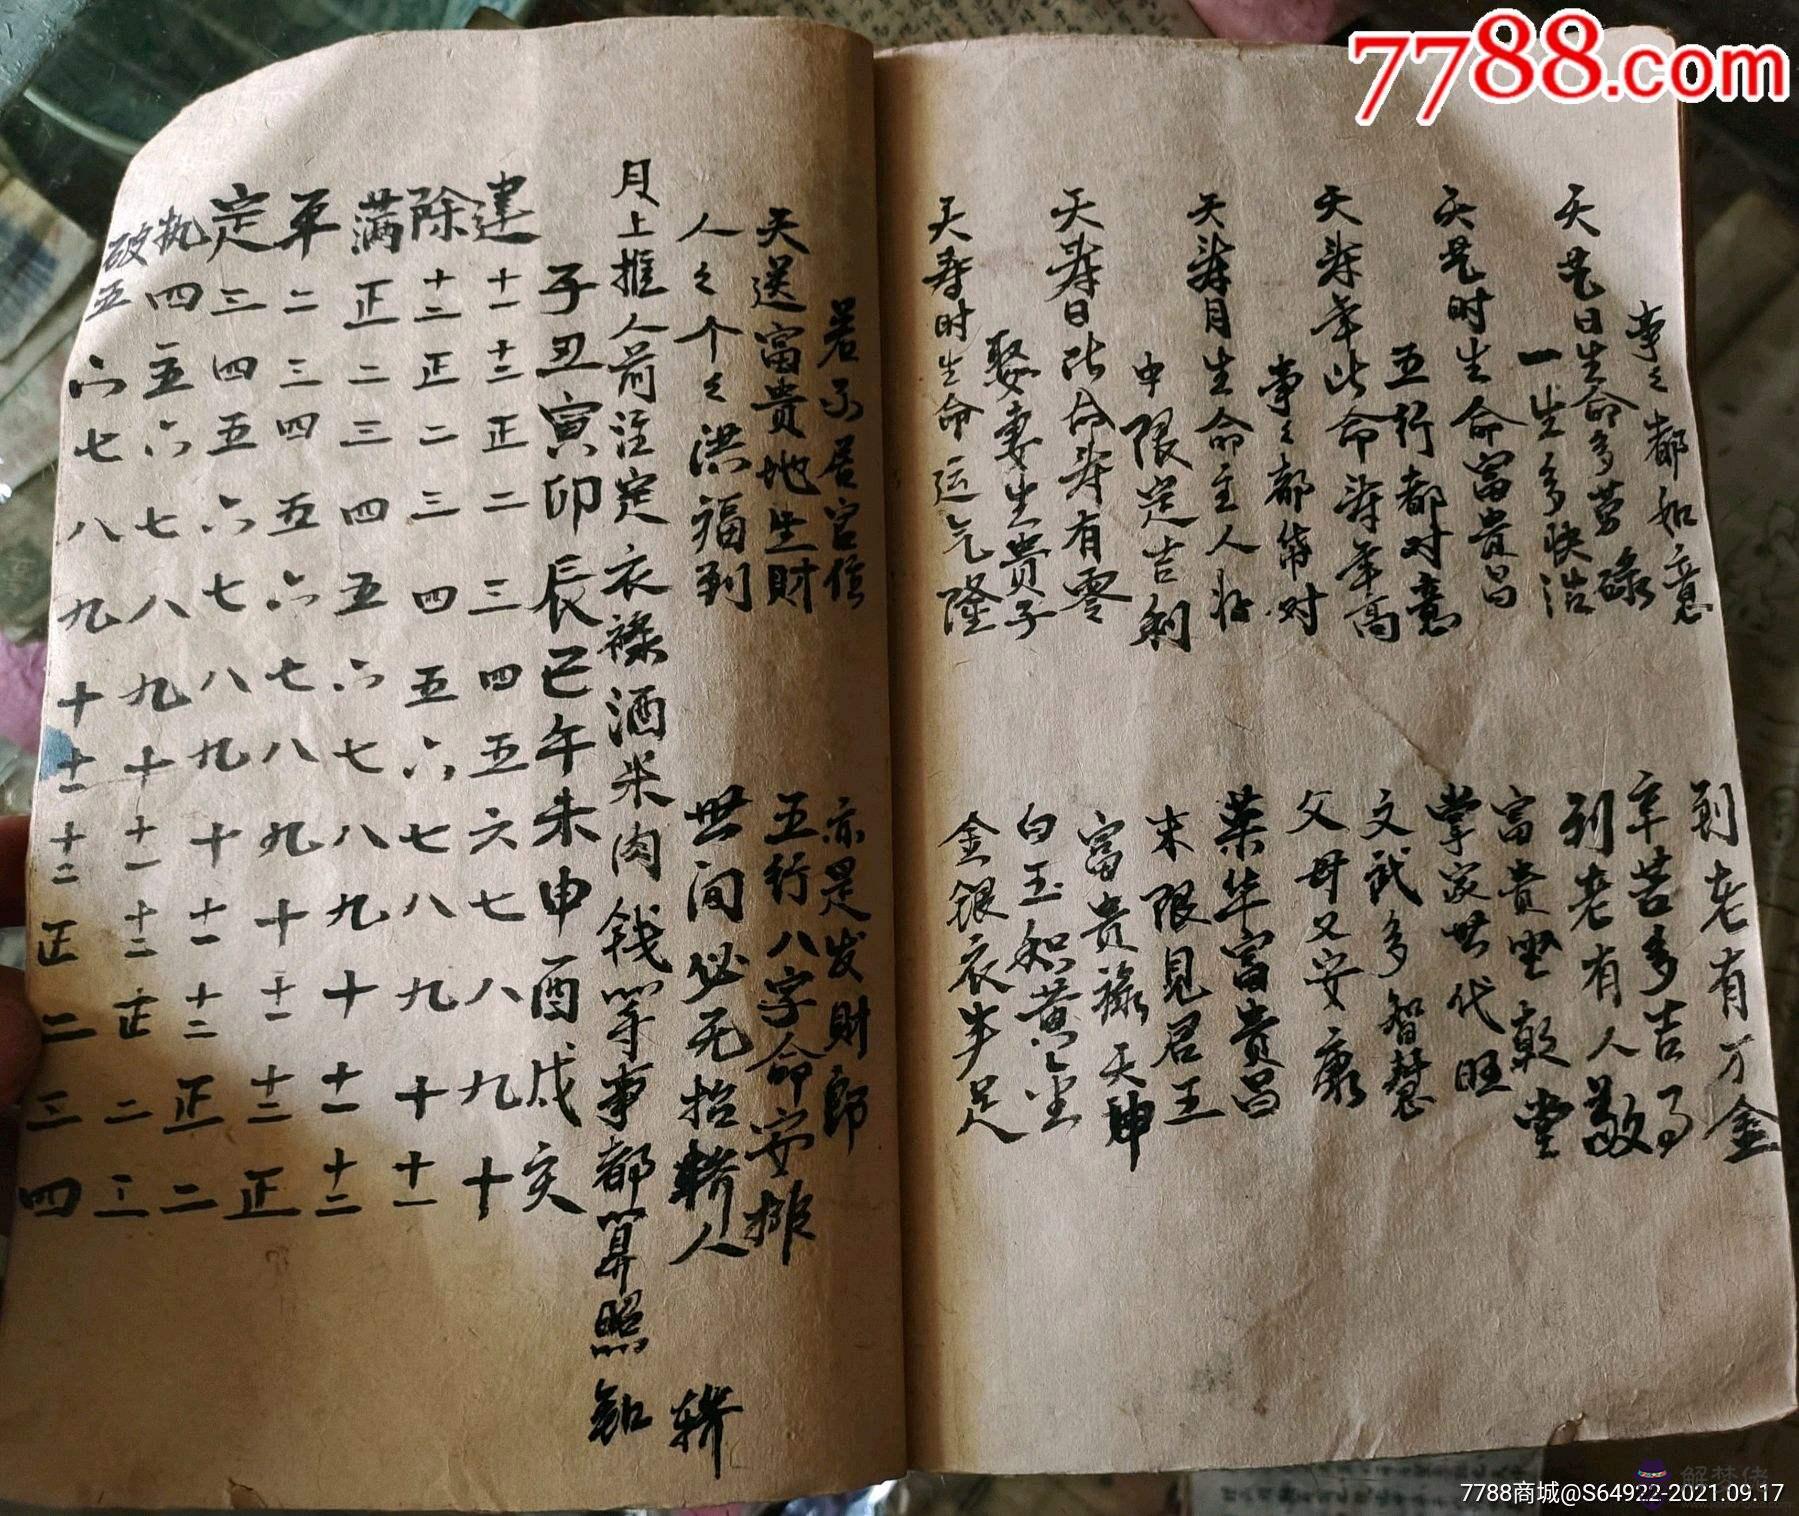 7788.com
事々都如意 到老有万金
天艺日生命多劳碌 辛苦多吉
一生多快活 到老有人敬
天艺时生命富贵昌 富贵坐乾堂
五行都对意 掌家世代旺
天寿年此命寿年高 文武多智慧
事々都常对 父母又安康
天寿月生命主人 荣华富贵昌
中限定吉利 末限见君王
天寿日此命寿有零 富贵 天神
娶妻生贵子 白玉和黄金
天寿时生命运气隆 金银衣 足
若不居官位 亦是发财郎
天送富贵地生财 五行八字命安排
人々个々洪福到 世间必无 人
月上推人前注定 衣禄酒米肉钱等事都算照
子丑寅卯辰巳午未申酉戌亥
建 十一 十二 正 二 三 四 五 六 七 八 九 十
除 十二 正 二 三 四 五 六 七 八 九 十 十一
满 正 二 三 四 五 六 七 八 九 十 十一 十二
平 二 三 四 五 六 七 八 九 十 十一 十二 正
定 三 四 五 六 七 八 九 十 十一 十二 正 二
执 四 五 六 七 八 九 十 十一 十二 正 二 三
破 五 六 七 八 九 十 十一 十二 正 二 三 四
解梦佬
7788商城@S64922-2021.09.17